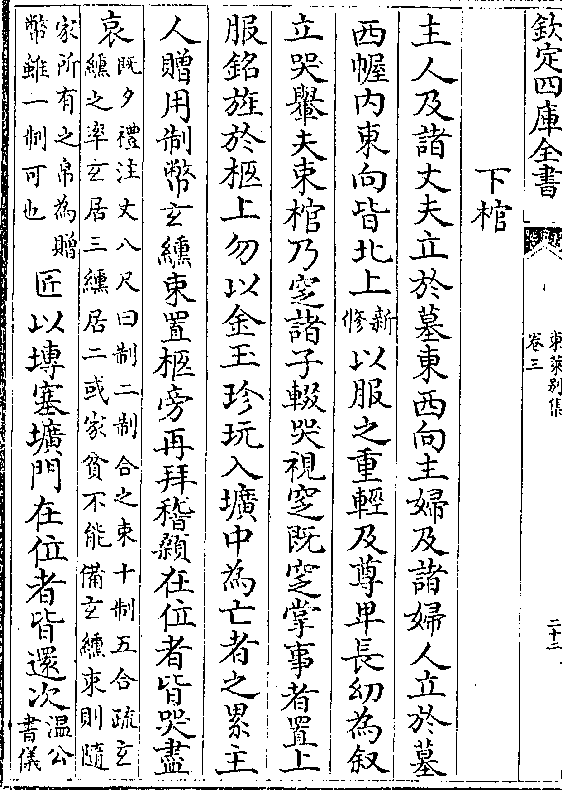 欽定四庫全書
東萊别集
卷三
二十三
下棺
主人及諸丈夫立於墓東西向主婦及諸婦人立於墓
西幄内東向皆北上新修以服之重輕及尊卑長幼為叙
立哭轝夫束棺乃窆諸子輟哭視窆既窆掌事者置上
服銘旌於柩上勿以金玉珍玩入壙中為亡者之累主
人贈用制幣玄纁束置柩旁再拜稽顙在位者皆哭盡
哀既夕禮注丈八尺曰制二制合之束十制五合疏玄
纁之率玄居三纁居二或家貧不能備玄纁束則隨
家所有之帛為贈
幣雖一制可也
匠以塼塞壙門在位者皆還次温公書儀